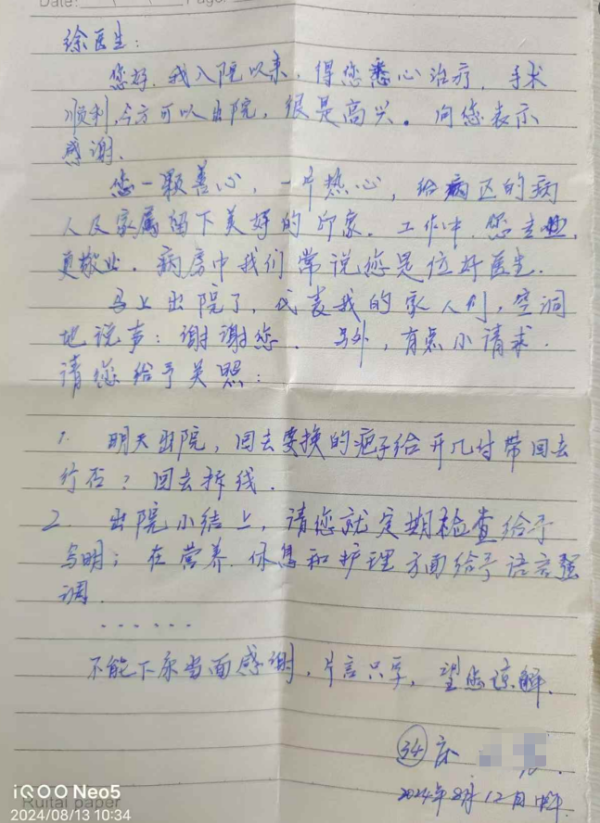 Date: Page:
徐医生:
您好,我入院以来,得您悉心治疗,手术
顺利,今方可以出院,很是高兴。向您表示
感谢.
您一颗善心,一片热心,给病区的病
人及家属留下美好的印象.工作中,您专业,
更敬业.病房中我们常说您是位好医生.
马上出院了,代表我的家人们,空洞
地说声:谢谢您.另外,有点小请求.
请您给予关照:
1. 明天出院,回去要换的疤子给开几付带回去
行否?回去拆线.
2. 出院小结上,请您就定期检查给予
写明;在营养.休息和护理方面给予语言强
调.
......
不能下床当面感谢,片言只字,望您谅解.
34 床
2024年8月12日
iQOO Neo5
2024/08/13 10:34
Ruitai paper